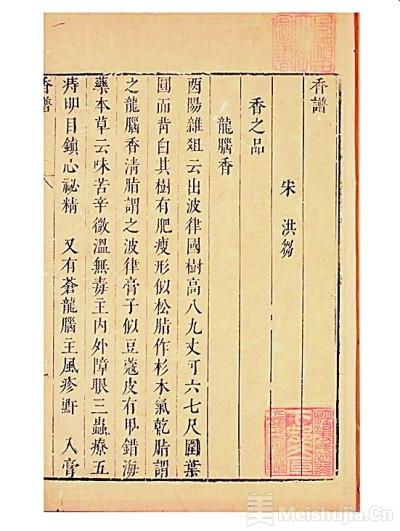 香譜
宋 洪芻
香之品
龍腦香
酉陽雜俎云出波律國樹高八九丈可六七尺圍葉
圓而背白其樹有肥瘦形似松脂作杉木氣乾脂謂
之龍腦香清脂謂之波律膏子似豆蔻皮有甲錯海
藥本草云味苦辛微溫無毒主內外障眼三蟲療五
痔明目鎮心祕精 又有蒼龍腦主風疹䵟 入膏
香譜
美 Meishujia.Cn